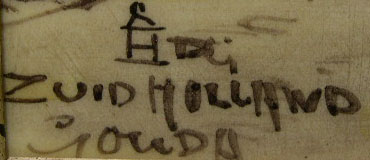 ZUID HOLLAND
GOUDA